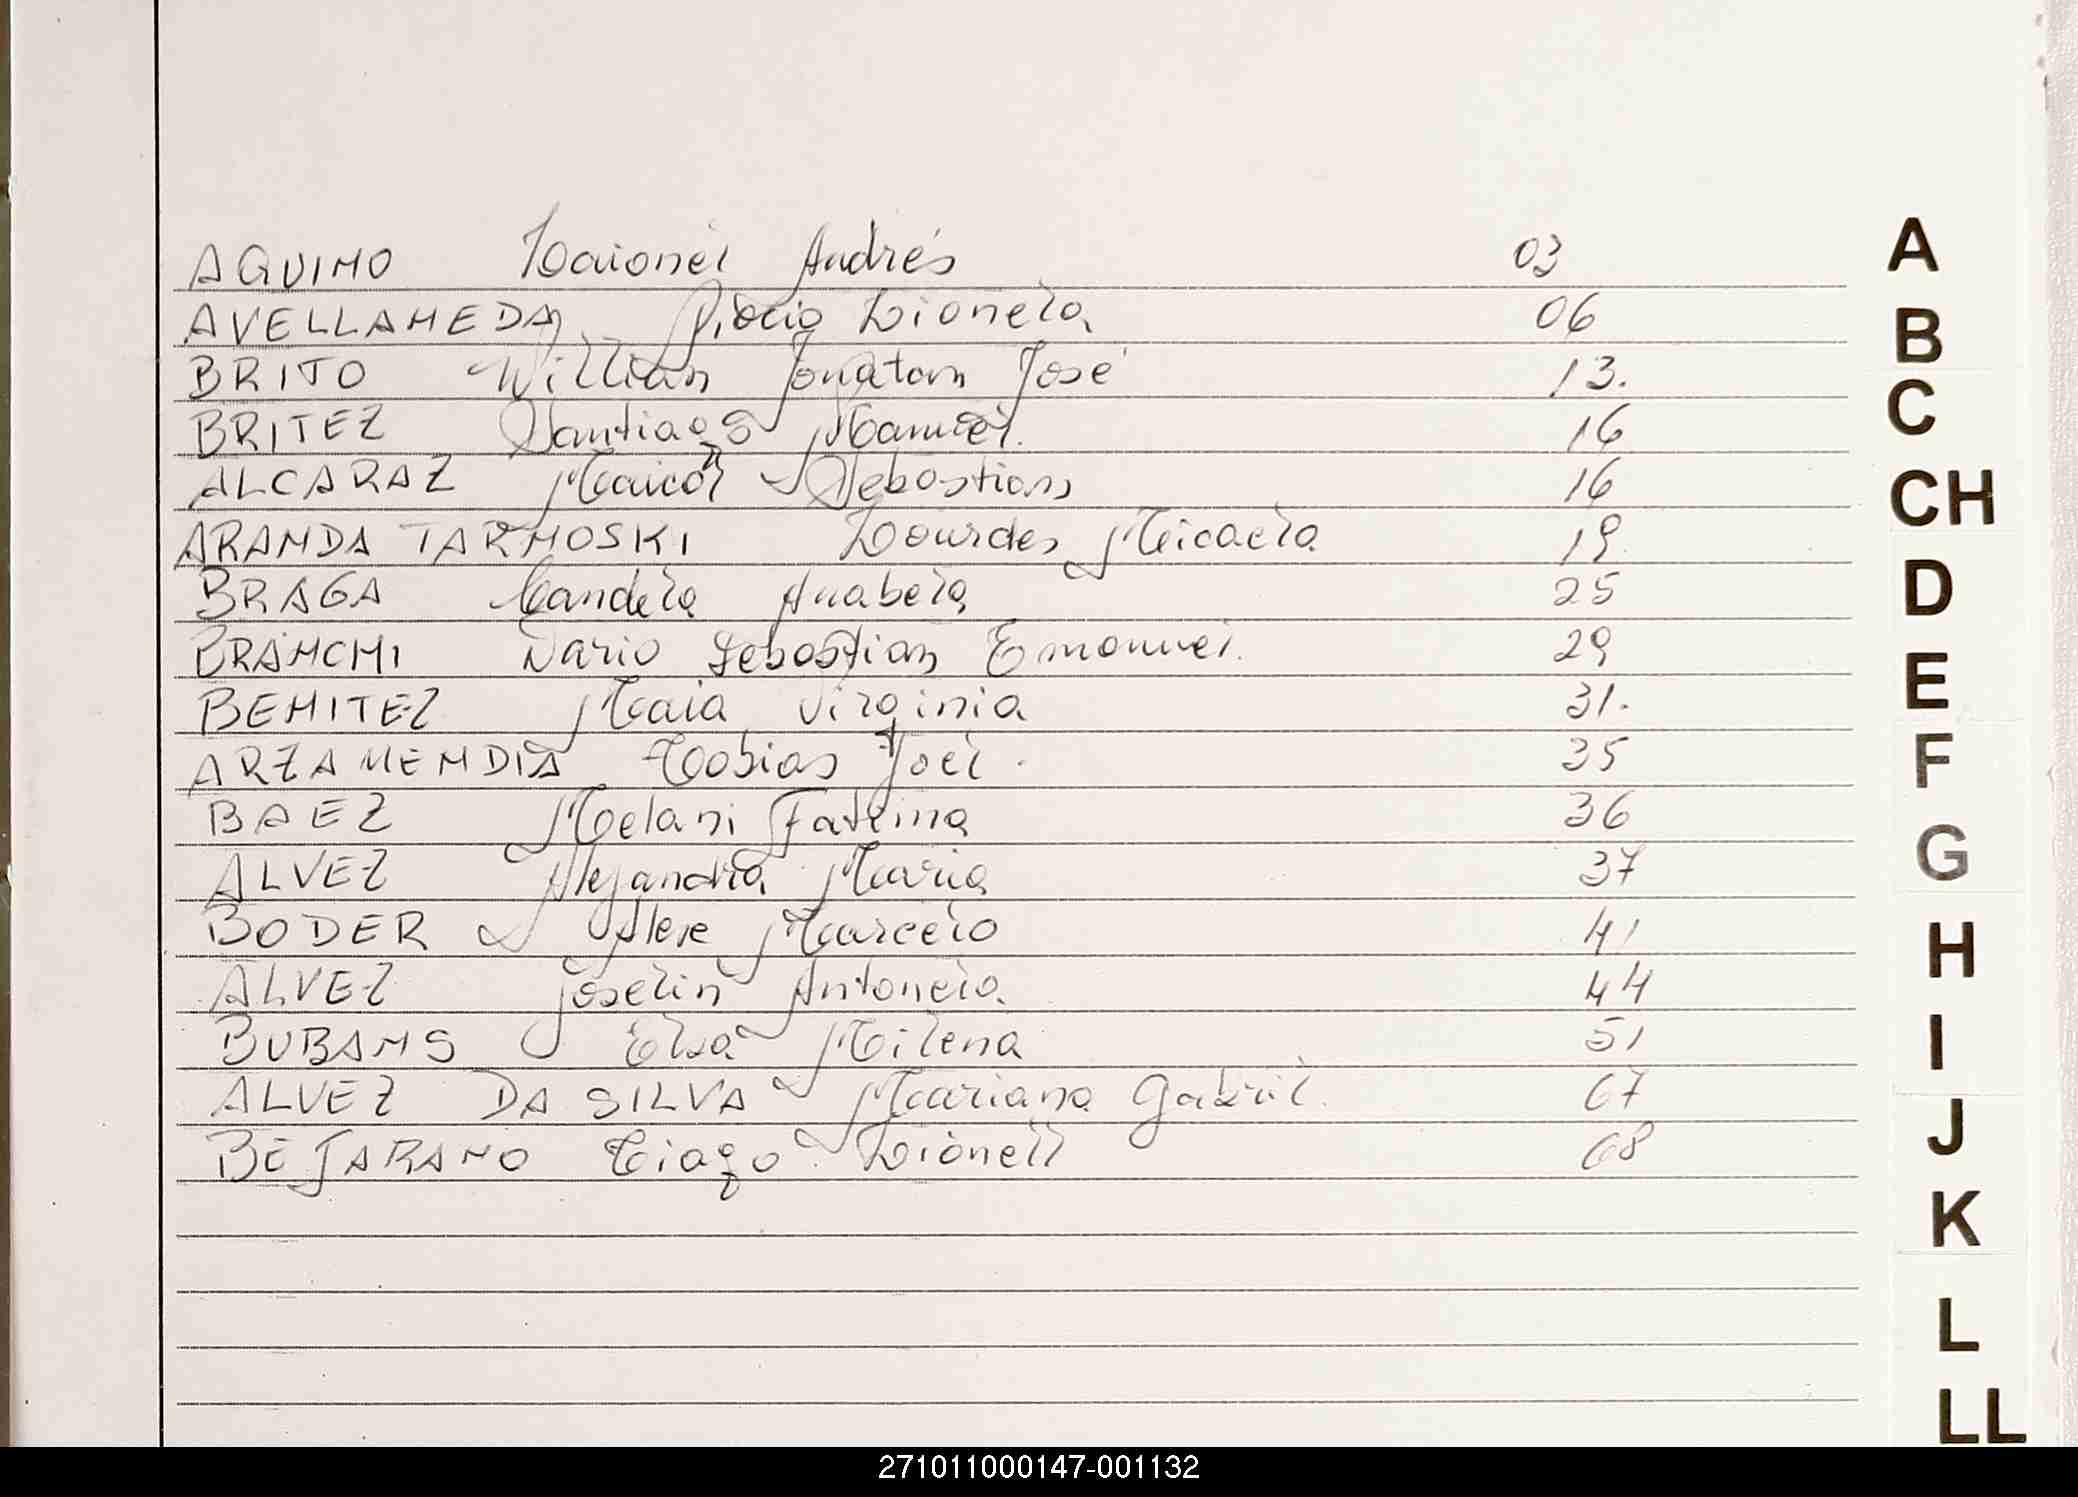 AQUINO Laionel Andrés 03
AVELLANEDA Rocio Lionela 06
BRITO Willian Jonatan José 13.
BRITEZ Santiago Manuel. 16
ALCARAZ Maicol Sebastian 16
ARANDA TARNOSKI Lourdes Micaela 19
BRAGA Candela Anabela 25
BRANCHI Dario Sebastian Emanuel. 29
BENITEZ Maia Virginia 31.
ARZAMENDIA Tobias Joel. 35
BAEZ Melani Fatima 36
ALVEZ Alejandra Maria 37
BODER Alexe Marcelo 41
ALVEZ Joselin Antonela. 44
BUBANS Elsa Milena 51
ALVEZ DA SILVA Mariano Gabriel. 67
BEJARANO Tiago Lionell 68
A
B
C
CH
D
E
F
G
H
I
J
K
L
LL
271011000147-001132